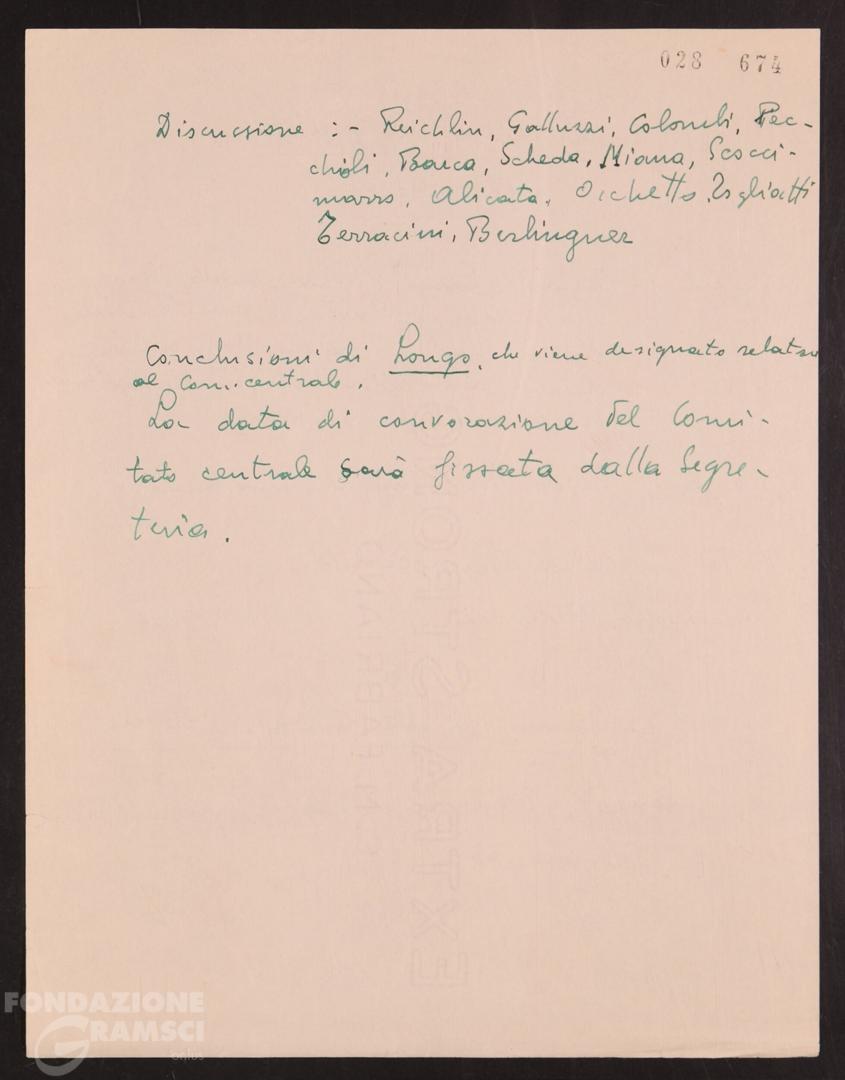 028 674
Discussione :- Reichlin, Galluzzi, Colombi, Pec-
chioli, Barca, Scheda, Miana, Scocci-
marro, Alicata, Occhetto, Togliatti
Terracini, Berlinguer
Conclusioni di Longo, che viene designato relatore
al Com. centrale.
La data di convocazione del Comi-
tato centrale sarà fissata dalla Segre-
teria.
C.M. FABRIANO
EXTRA STRONG
FONDAZIONE
GRAMSCI
onlus